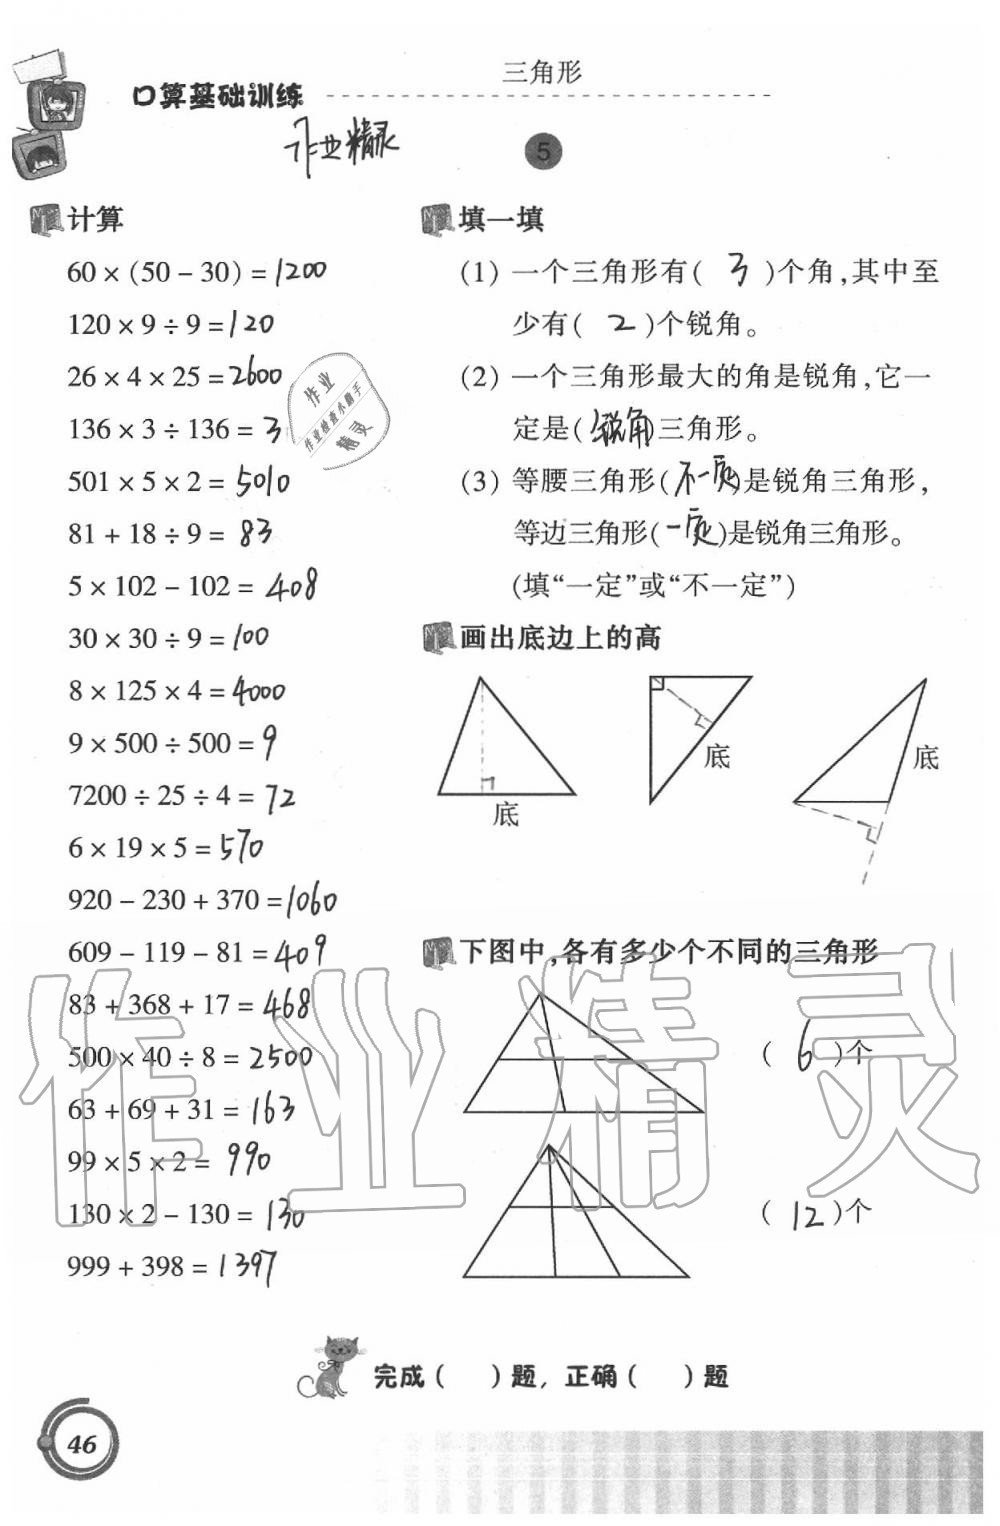 三角形
口算基础训练
作业精灵
5
计算
60 × (50 − 30) = 1200
120 × 9 ÷ 9 = 120
26 × 4 × 25 = 2600
136 × 3 ÷ 136 = 3
501 × 5 × 2 = 5010
81 + 18 ÷ 9 = 83
5 × 102 − 102 = 408
30 × 30 ÷ 9 = 100
8 × 125 × 4 = 4000
9 × 500 ÷ 500 = 9
7200 ÷ 25 ÷ 4 = 72
6 × 19 × 5 = 570
920 − 230 + 370 = 1060
609 − 119 − 81 = 409
83 + 368 + 17 = 468
500 × 40 ÷ 8 = 2500
63 + 69 + 31 = 163
99 × 5 × 2 = 990
130 × 2 − 130 = 130
999 + 398 = 1397
作业
作业检查小助手
精灵
填一填
(1) 一个三角形有( 3 )个角,其中至
少有( 2 )个锐角。
(2) 一个三角形最大的角是锐角,它一
定是(锐角)三角形。
(3) 等腰三角形(不一定)是锐角三角形,
等边三角形(一定)是锐角三角形。
(填“一定”或“不一定”)
画出底边上的高
底
底
底
下图中,各有多少个不同的三角形
( 6 )个
( 12 )个
作业精灵
完成( )题, 正确( )题
46